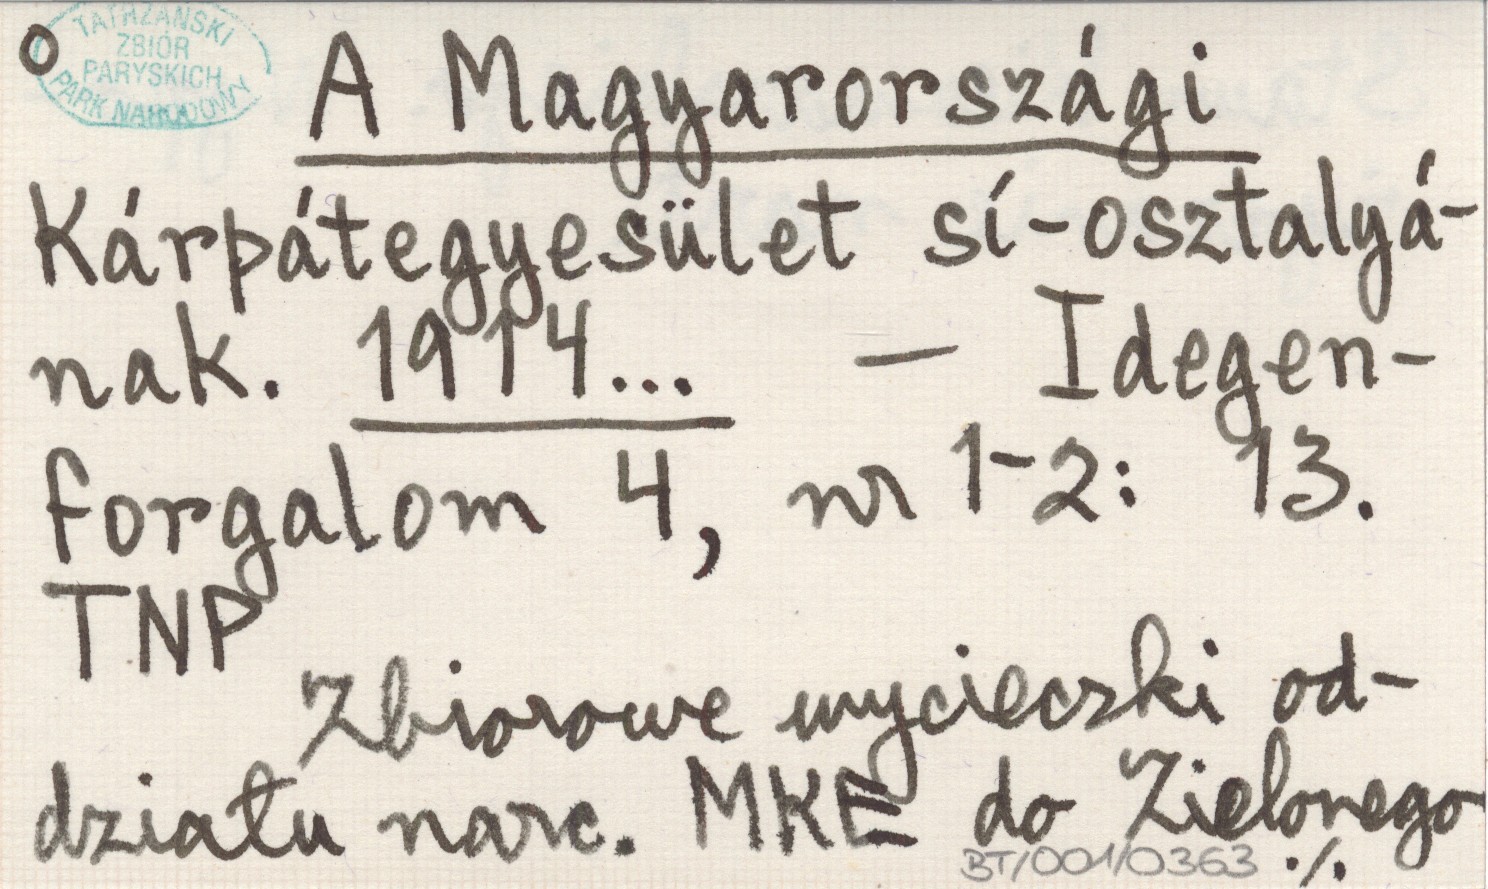 TATRZAŃSKI
ZBIÓR
PARYSKICH
PARK NARODOWY
o
A Magyarországi
Kárpátegyesület sí-osztalyá-
nak. 1914... — Idegen-
forgalom 4, nr 1-2: 13.
TNP
Zbiorowe wycieczki od-
działu narc. MKE do Zielonego
BT/001/0363 ./.